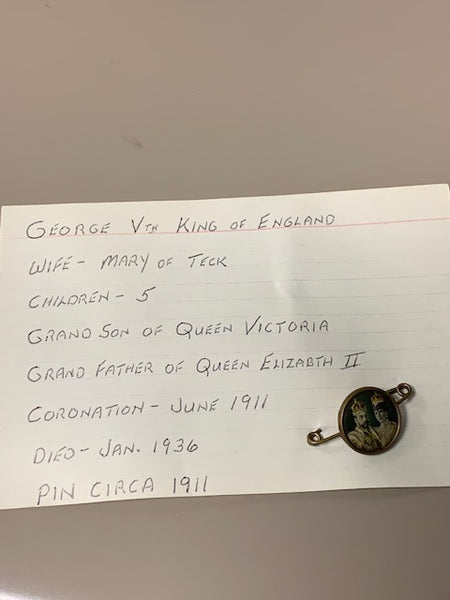 GEORGE VTH KING OF ENGLAND
WIFE - MARY OF TECK
CHILDREN - 5
GRAND SON OF QUEEN VICTORIA
GRAND FATHER OF QUEEN ELIZABTH II
CORONATION - JUNE 1911
DIED - JAN. 1936
PIN CIRCA 1911